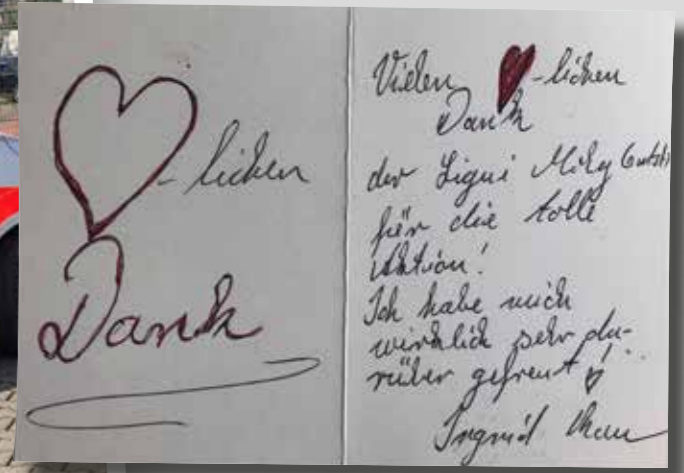 -lichen
Dank
Vielen -lichen
Dank
der Liqui Moly
für die tolle
Aktion!
Ich habe mich
wirklich sehr da-
rüber gefreut!
Ingrid